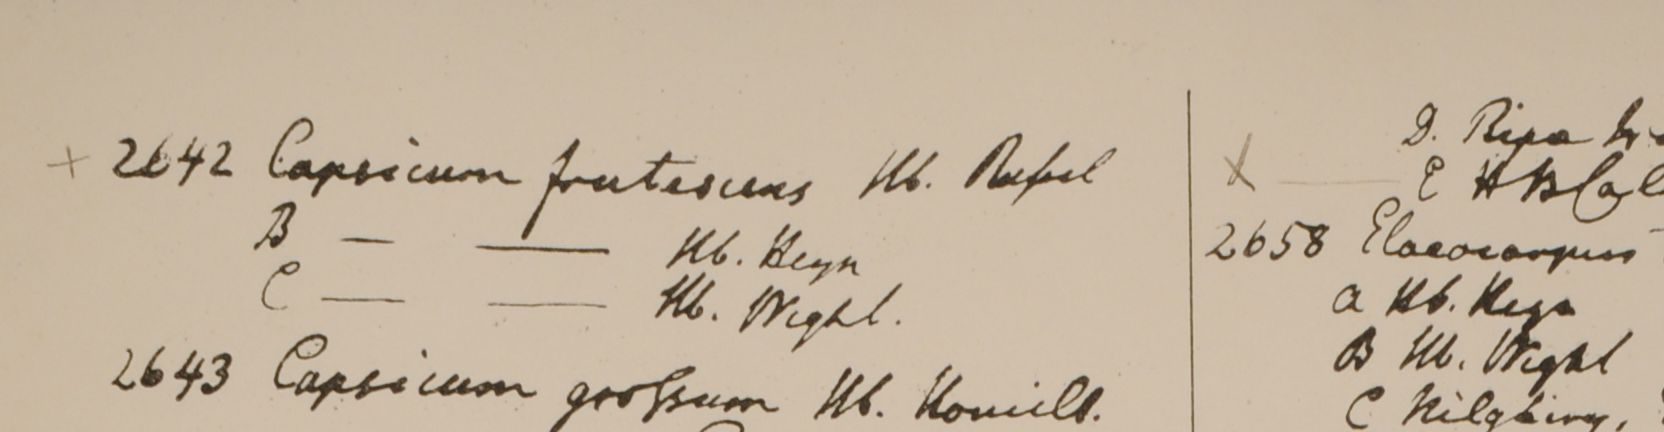 + 2642 Capsicum frutescens Hb. Russel
B — — Hb. Heyn
C — — Hb. Wight.
2643 Capsicum grossum Hb. Hamilt.
D. Ripa
E H B Cal
2658 Elaeocarpus
a Hb. Heyn
B Hb. Wight
C Nilghiry,